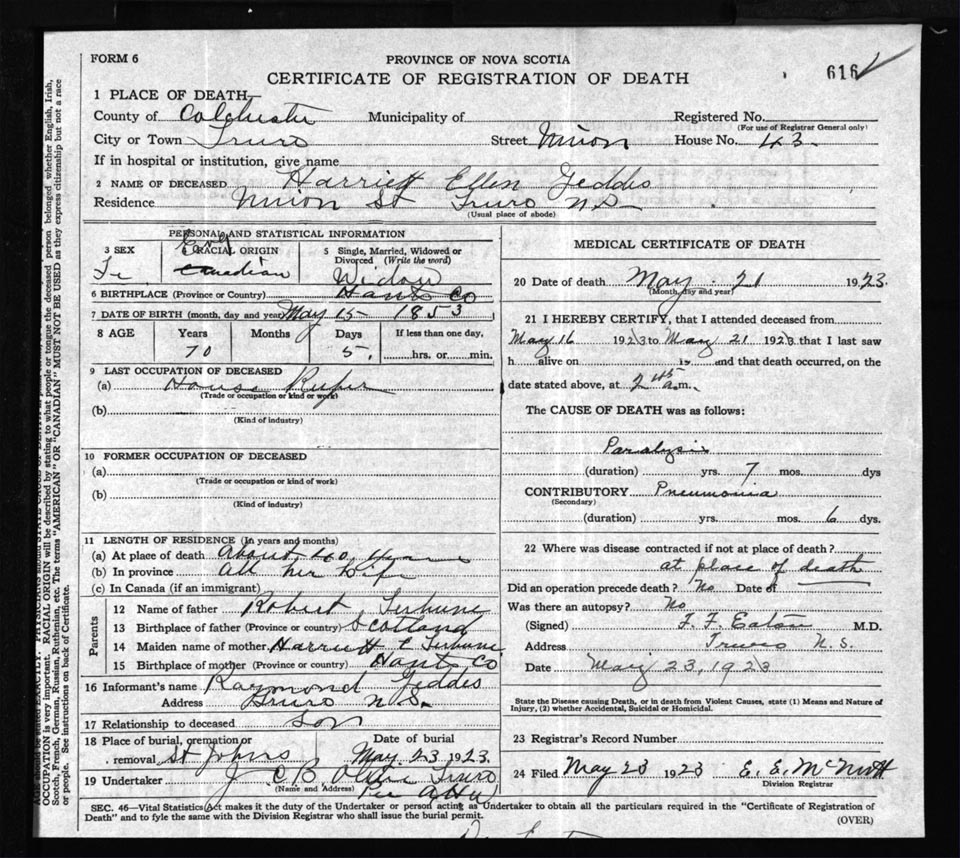 FORM 6
PROVINCE OF NOVA SCOTIA
CERTIFICATE OF REGISTRATION OF DEATH
616
1 PLACE OF DEATH—
County of Colchester Municipality of Registered No.
(For use of Registrar General only)
City or Town Truro Street Union House No. 43
If in hospital or institution, give name
2 NAME OF DECEASED Harriett Ellen Geddis
Residence Union St Truro N.S.
(Usual place of abode)
PERSONAL AND STATISTICAL INFORMATION
3 SEX
Fe
4 RACIAL ORIGIN
Canadian
5 Single, Married, Widowed or Divorced (Write the word)
Widow
6 BIRTHPLACE (Province or Country) Hants Co
7 DATE OF BIRTH (month, day and year) May 15 1853
8 AGE Years Months Days If less than one day,
70 5. hrs. or min.
9 LAST OCCUPATION OF DECEASED
(a) House Keeper
(Trade or occupation or kind or work)
(b)
(Kind of industry)
10 FORMER OCCUPATION OF DECEASED
(a)
(Trade or occupation or kind of work)
(b)
(Kind of industry)
11 LENGTH OF RESIDENCE (In years and months)
(a) At place of death About 40 years
(b) In province all her Life
(c) In Canada (if an immigrant)
Parents
12 Name of father Robert
13 Birthplace of father (Province or country) Scotland
14 Maiden name of mother Harriett E
15 Birthplace of mother (Province or country) Hants Co
16 Informant's name Raymond Geddis
Address Truro N S.
17 Relationship to deceased Son
18 Place of burial, cremation or removal St Johns
Date of burial
May 23 1923.
19 Undertaker J C B Truro
(Name and Address)
Per
MEDICAL CERTIFICATE OF DEATH
20 Date of death May 21 1923.
(Month, day and year)
21 I HEREBY CERTIFY, that I attended deceased from
May 16 1923 to May 21 1923 that I last saw
h alive on is and that death occurred, on the
date stated above, at 2 45 a.m.
The CAUSE OF DEATH was as follows:
Paralysis
(duration) yrs. 7 mos. dys
CONTRIBUTORY Pneumonia
(Secondary)
(duration) yrs. mos. 6 dys.
22 Where was disease contracted if not at place of death?
at place of death
Did an operation precede death? No Date of
Was there an autopsy? No
(Signed) F. F. Eaton M.D.
Address Truro N.S.
Date May 23, 1923
State the Disease causing Death, or in death from Violent Causes, state (1) Means and Nature of
Injury, (2) whether Accidental, Suicidal or Homicidal.
23 Registrar's Record Number
24 Filed May 23 1923 E. E. McNutt
Division Registrar
SEC. 46—Vital Statistics Act makes it the duty of the Undertaker or person acting as Undertaker to obtain all the particulars required in the "Certificate of Registration of
Death" and to fyle the same with the Division Registrar who shall issue the burial permit.
(OVER)
OCCUPATION is very important. RACIAL ORIGIN will be described by stating to what people or tongue the deceased person belonged whether English, Irish,
Scotch, French, German, Russian, Ruthenian, etc. The terms "AMERICAN" OR "CANADIAN" MUST NOT BE USED as they express citizenship but not a race
or people. See instructions on back of Certificate.